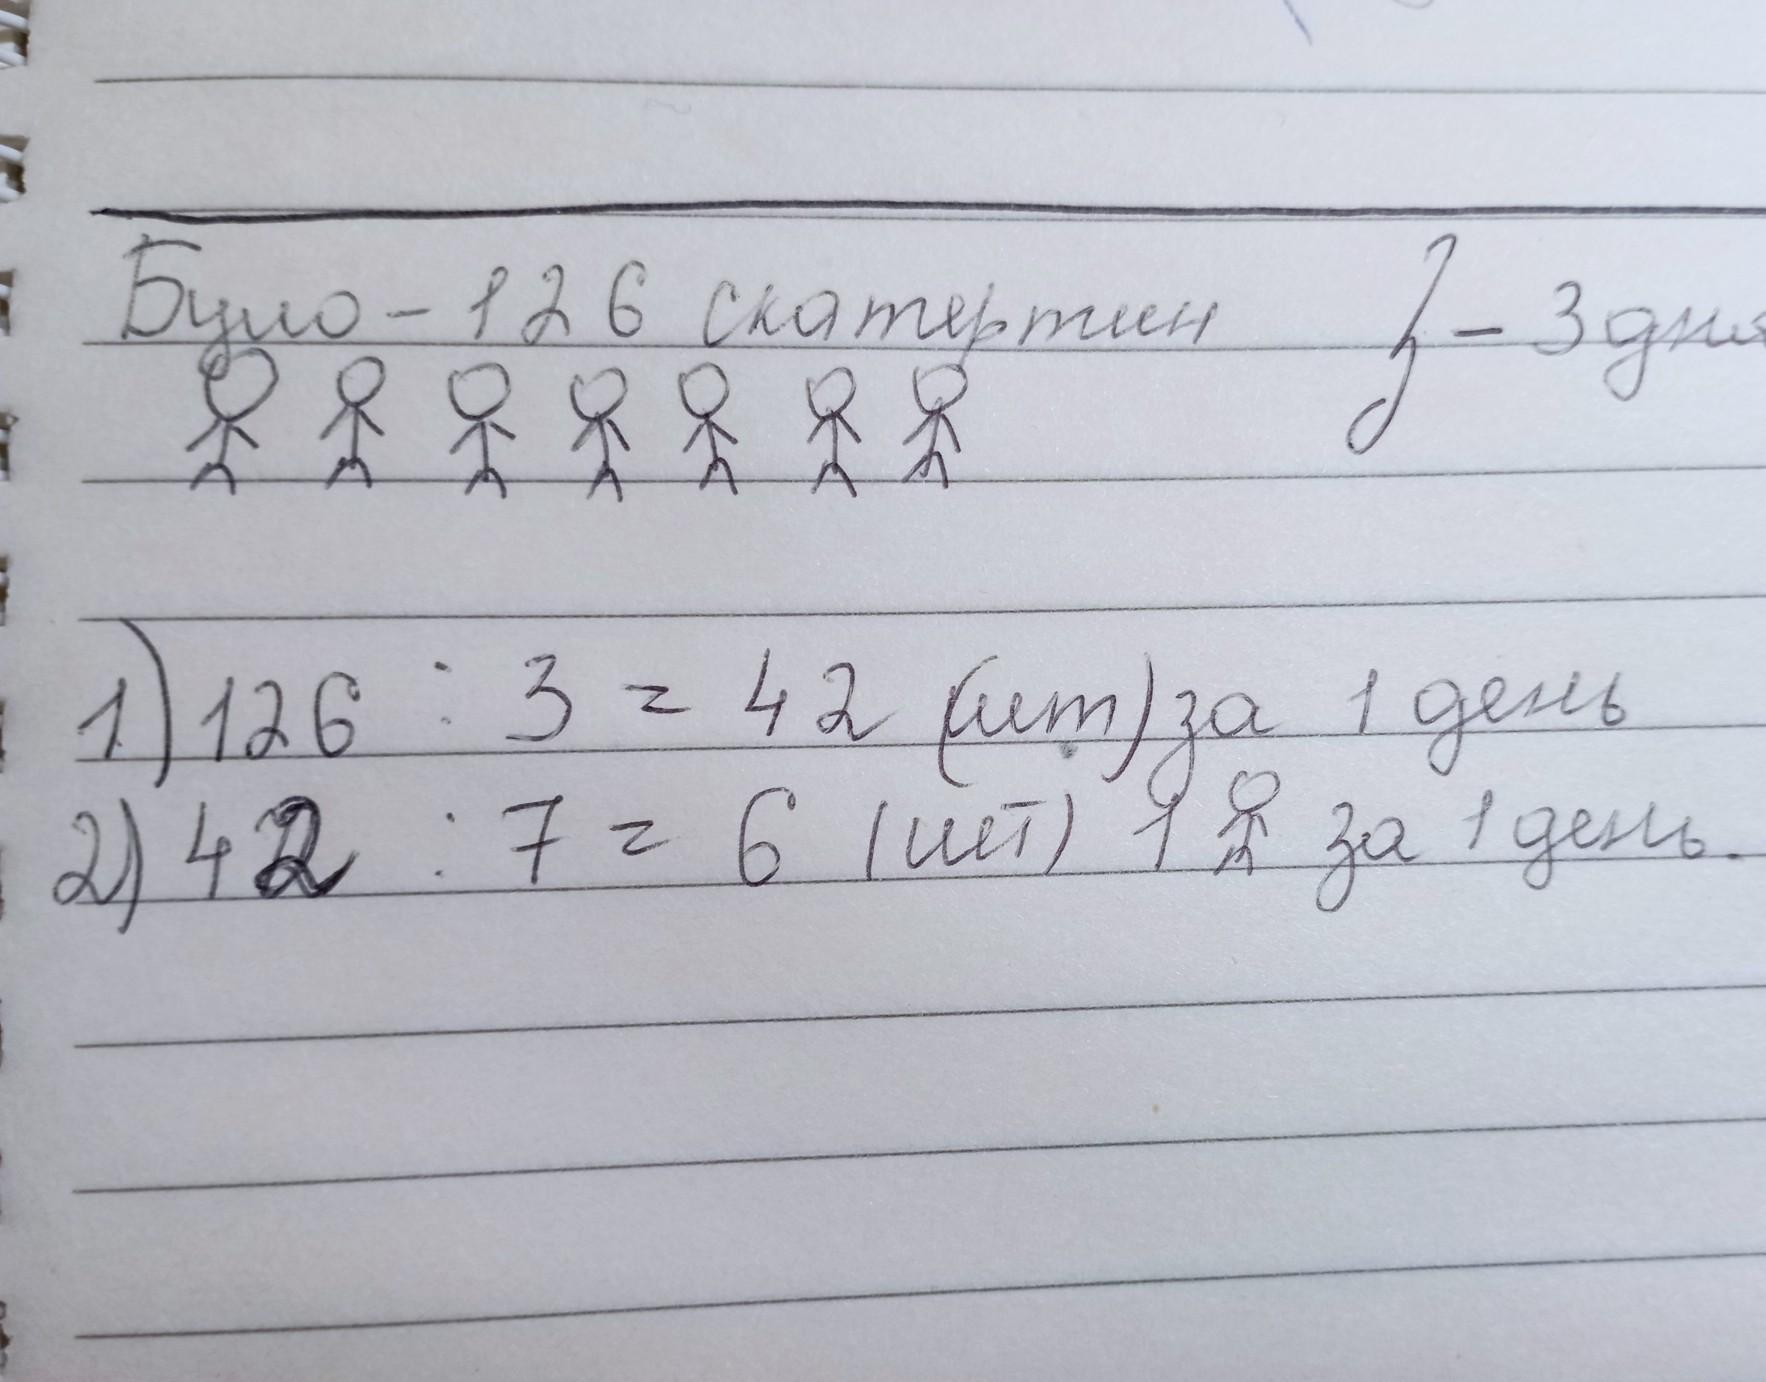 Було - 126 скатертин } - 3 дня
1) 126 : 3 = 42 (шт) за 1 день
2) 42 : 7 = 6 (шт) 1 за 1 день.